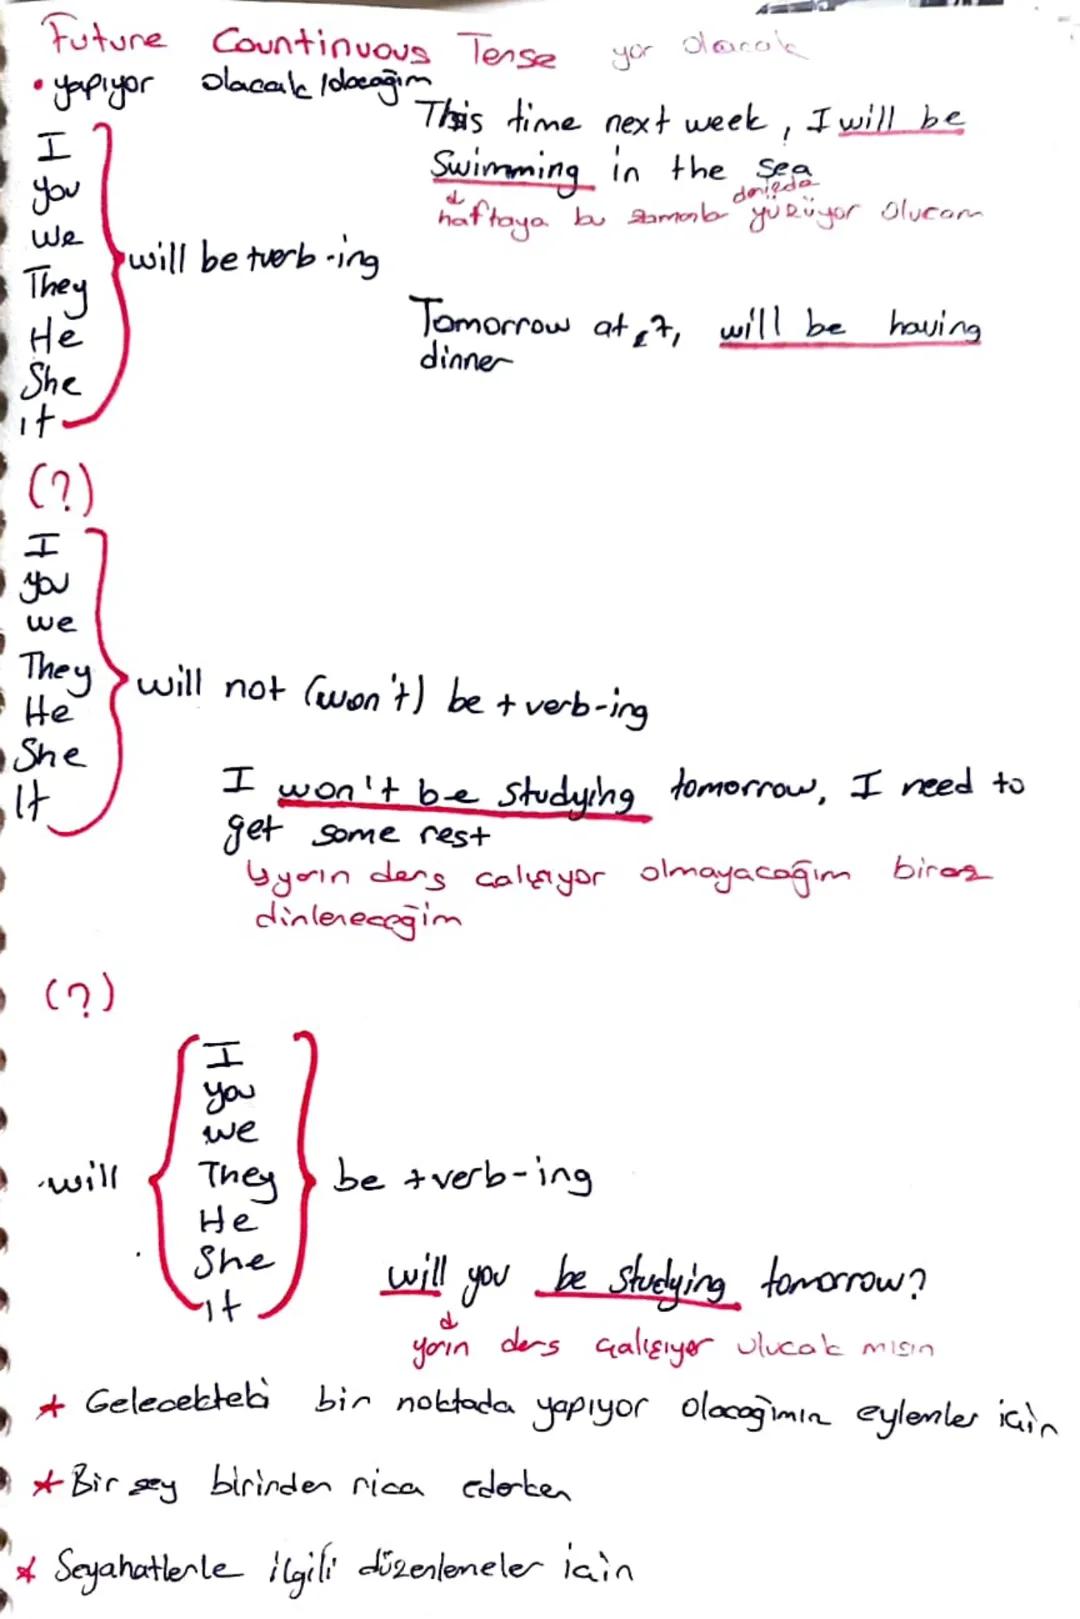 Future Countinuous Tense yor olacak
• yapıyor olacak / olacağım
This time next week, I will be
Swimming in the sea
denizde
haftaya bu zamanlar yüzüyor olucam
I
you
we
They
He
She
it
will be + verb-ing
Tomorrow at 7, will be having
dinner
(?)
I
you
we
They
He
She
It
will not (won't) be + verb-ing
I won't be studying tomorrow, I need to
get some rest
yarın ders çalışıyor olmayacağım biraz
dinleneceğim
(?)
will
I
you
we
They
He
She
it
be + verb-ing
will you be studying tomorrow?
yarın ders çalışıyor ulucak mısın
* Gelecekteki bir noktada yapıyor olacağımız eylemler için
* Bir şey birinden rica ederken
* Seyahatlerle ilgili düzenlemeler için